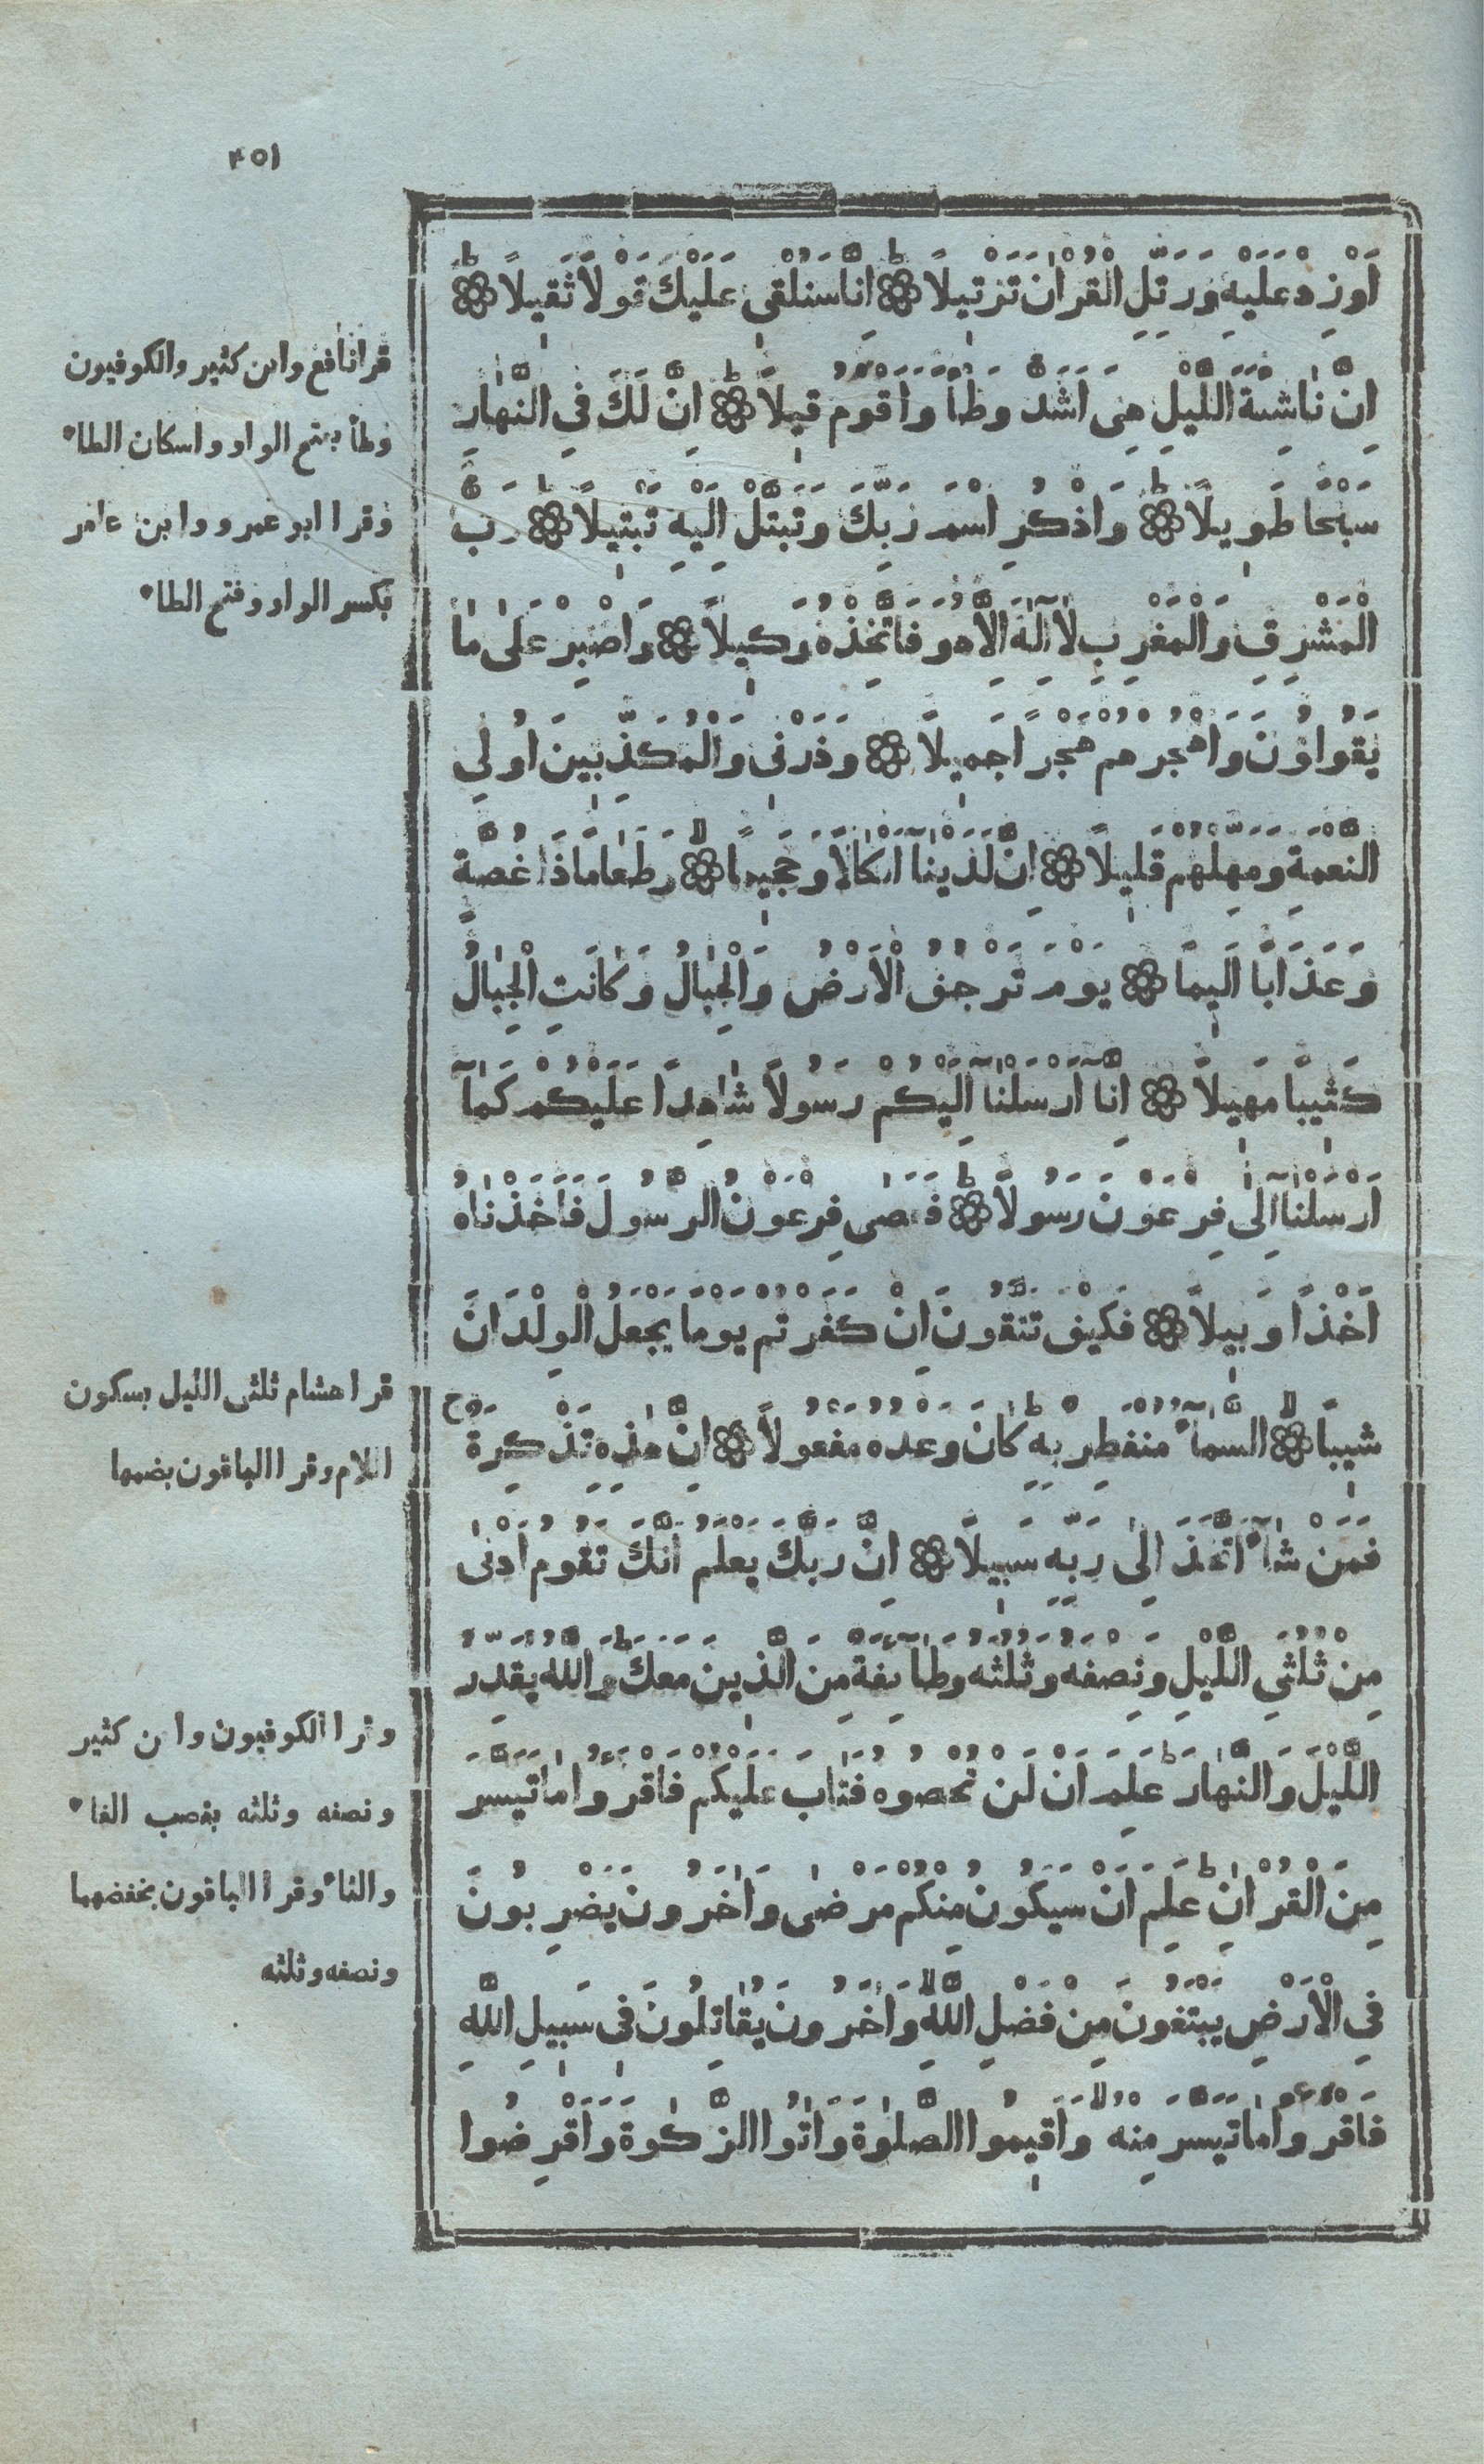 ٤٥١
اَوْ زِدْ عَلَيْهِ وَرَتِّلِ الْقُرْاٰنَ تَرْتٖيلًاؕ اِنَّا سَنُلْقٖى عَلَيْكَ قَوْلًا ثَقٖيلًاؕ
اِنَّ نَاشِئَةَ الَّيْلِ هِىَ اَشَدُّ وَطْأً وَاَقْوَمُ قٖيلًاؕ اِنَّ لَكَ فِى النَّهَارِ
سَبْحًا طَوٖيلًاؕ وَاذْكُرِ اسْمَ رَبِّكَ وَتَبَتَّلْ اِلَيْهِ تَبْتٖيلًاؕ رَبُّ
الْمَشْرِقِ وَالْمَغْرِبِ لَآ اِلٰهَ اِلَّا هُوَ فَاتَّخِذْهُ وَكٖيلًا وَاصْبِرْ عَلٰى مَا
يَقُولُونَ وَاهْجُرْهُمْ هَجْرًا جَمٖيلًا وَذَرْنٖى وَالْمُكَذِّبٖينَ اُولِى
النَّعْمَةِ وَمَهِّلْهُمْ قَلٖيلًا اِنَّ لَدَيْنَآ اَنْكَالًا وَجَحٖيمًاۙ وَطَعَامًا ذَا غُصَّةٍ
وَعَذَابًا اَلٖيمًا يَوْمَ تَرْجُفُ الْاَرْضُ وَالْجِبَالُ وَكَانَتِ الْجِبَالُ
كَثٖيبًا مَهٖيلًا اِنَّآ اَرْسَلْنَآ اِلَيْكُمْ رَسُولًا شَاهِدًا عَلَيْكُمْ كَمَآ
اَرْسَلْنَآ اِلٰى فِرْعَوْنَ رَسُولًاؕ فَعَصٰى فِرْعَوْنُ الرَّسُولَ فَاَخَذْنَاهُ
اَخْذًا وَبٖيلًا فَكَيْفَ تَتَّقُونَ اِنْ كَفَرْتُمْ يَوْمًا يَجْعَلُ الْوِلْدَانَ
شٖيبًاۙ السَّمَآءُ مُنْفَطِرٌ بِهٖؕ كَانَ وَعْدُهُ مَفْعُولًا اِنَّ هٰذِهٖ تَذْكِرَةٌۚ
فَمَنْ شَآءَ اتَّخَذَ اِلٰى رَبِّهٖ سَبٖيلًا اِنَّ رَبَّكَ يَعْلَمُ اَنَّكَ تَقُومُ اَدْنٰى
مِنْ ثُلُثَىِ الَّيْلِ وَنِصْفَهُ وَثُلُثَهُ وَطَآئِفَةٌ مِنَ الَّذٖينَ مَعَكَؕ وَاللّٰهُ يُقَدِّرُ
الَّيْلَ وَالنَّهَارَؕ عَلِمَ اَنْ لَنْ تُحْصُوهُ فَتَابَ عَلَيْكُمْ فَاقْرَؤُا مَا تَيَسَّرَ
مِنَ الْقُرْاٰنِؕ عَلِمَ اَنْ سَيَكُونُ مِنْكُمْ مَرْضٰى وَاٰخَرُونَ يَضْرِبُونَ
فِى الْاَرْضِ يَبْتَغُونَ مِنْ فَضْلِ اللّٰهِۙ وَاٰخَرُونَ يُقَاتِلُونَ فٖى سَبٖيلِ اللّٰهِ
فَاقْرَؤُا مَا تَيَسَّرَ مِنْهُۙ وَاَقٖيمُوا الصَّلٰوةَ وَاٰتُوا الزَّكٰوةَ وَاَقْرِضُوا
قرا نافع وابن كثير والكوفيون
وطأ بفتح الواو واسكان الطاء
وقرا ابو عمرو وابن عامر
بكسر الواو وفتح الطاء
قرا هشام ثلثى الليل بسكون
اللام وقرا الباقون بضمها
وقرا الكوفيون وابن كثير
ونصفه وثلثه بنصب الفاء
والثاء وقرا الباقون بخفضهما
ونصفه وثلثه